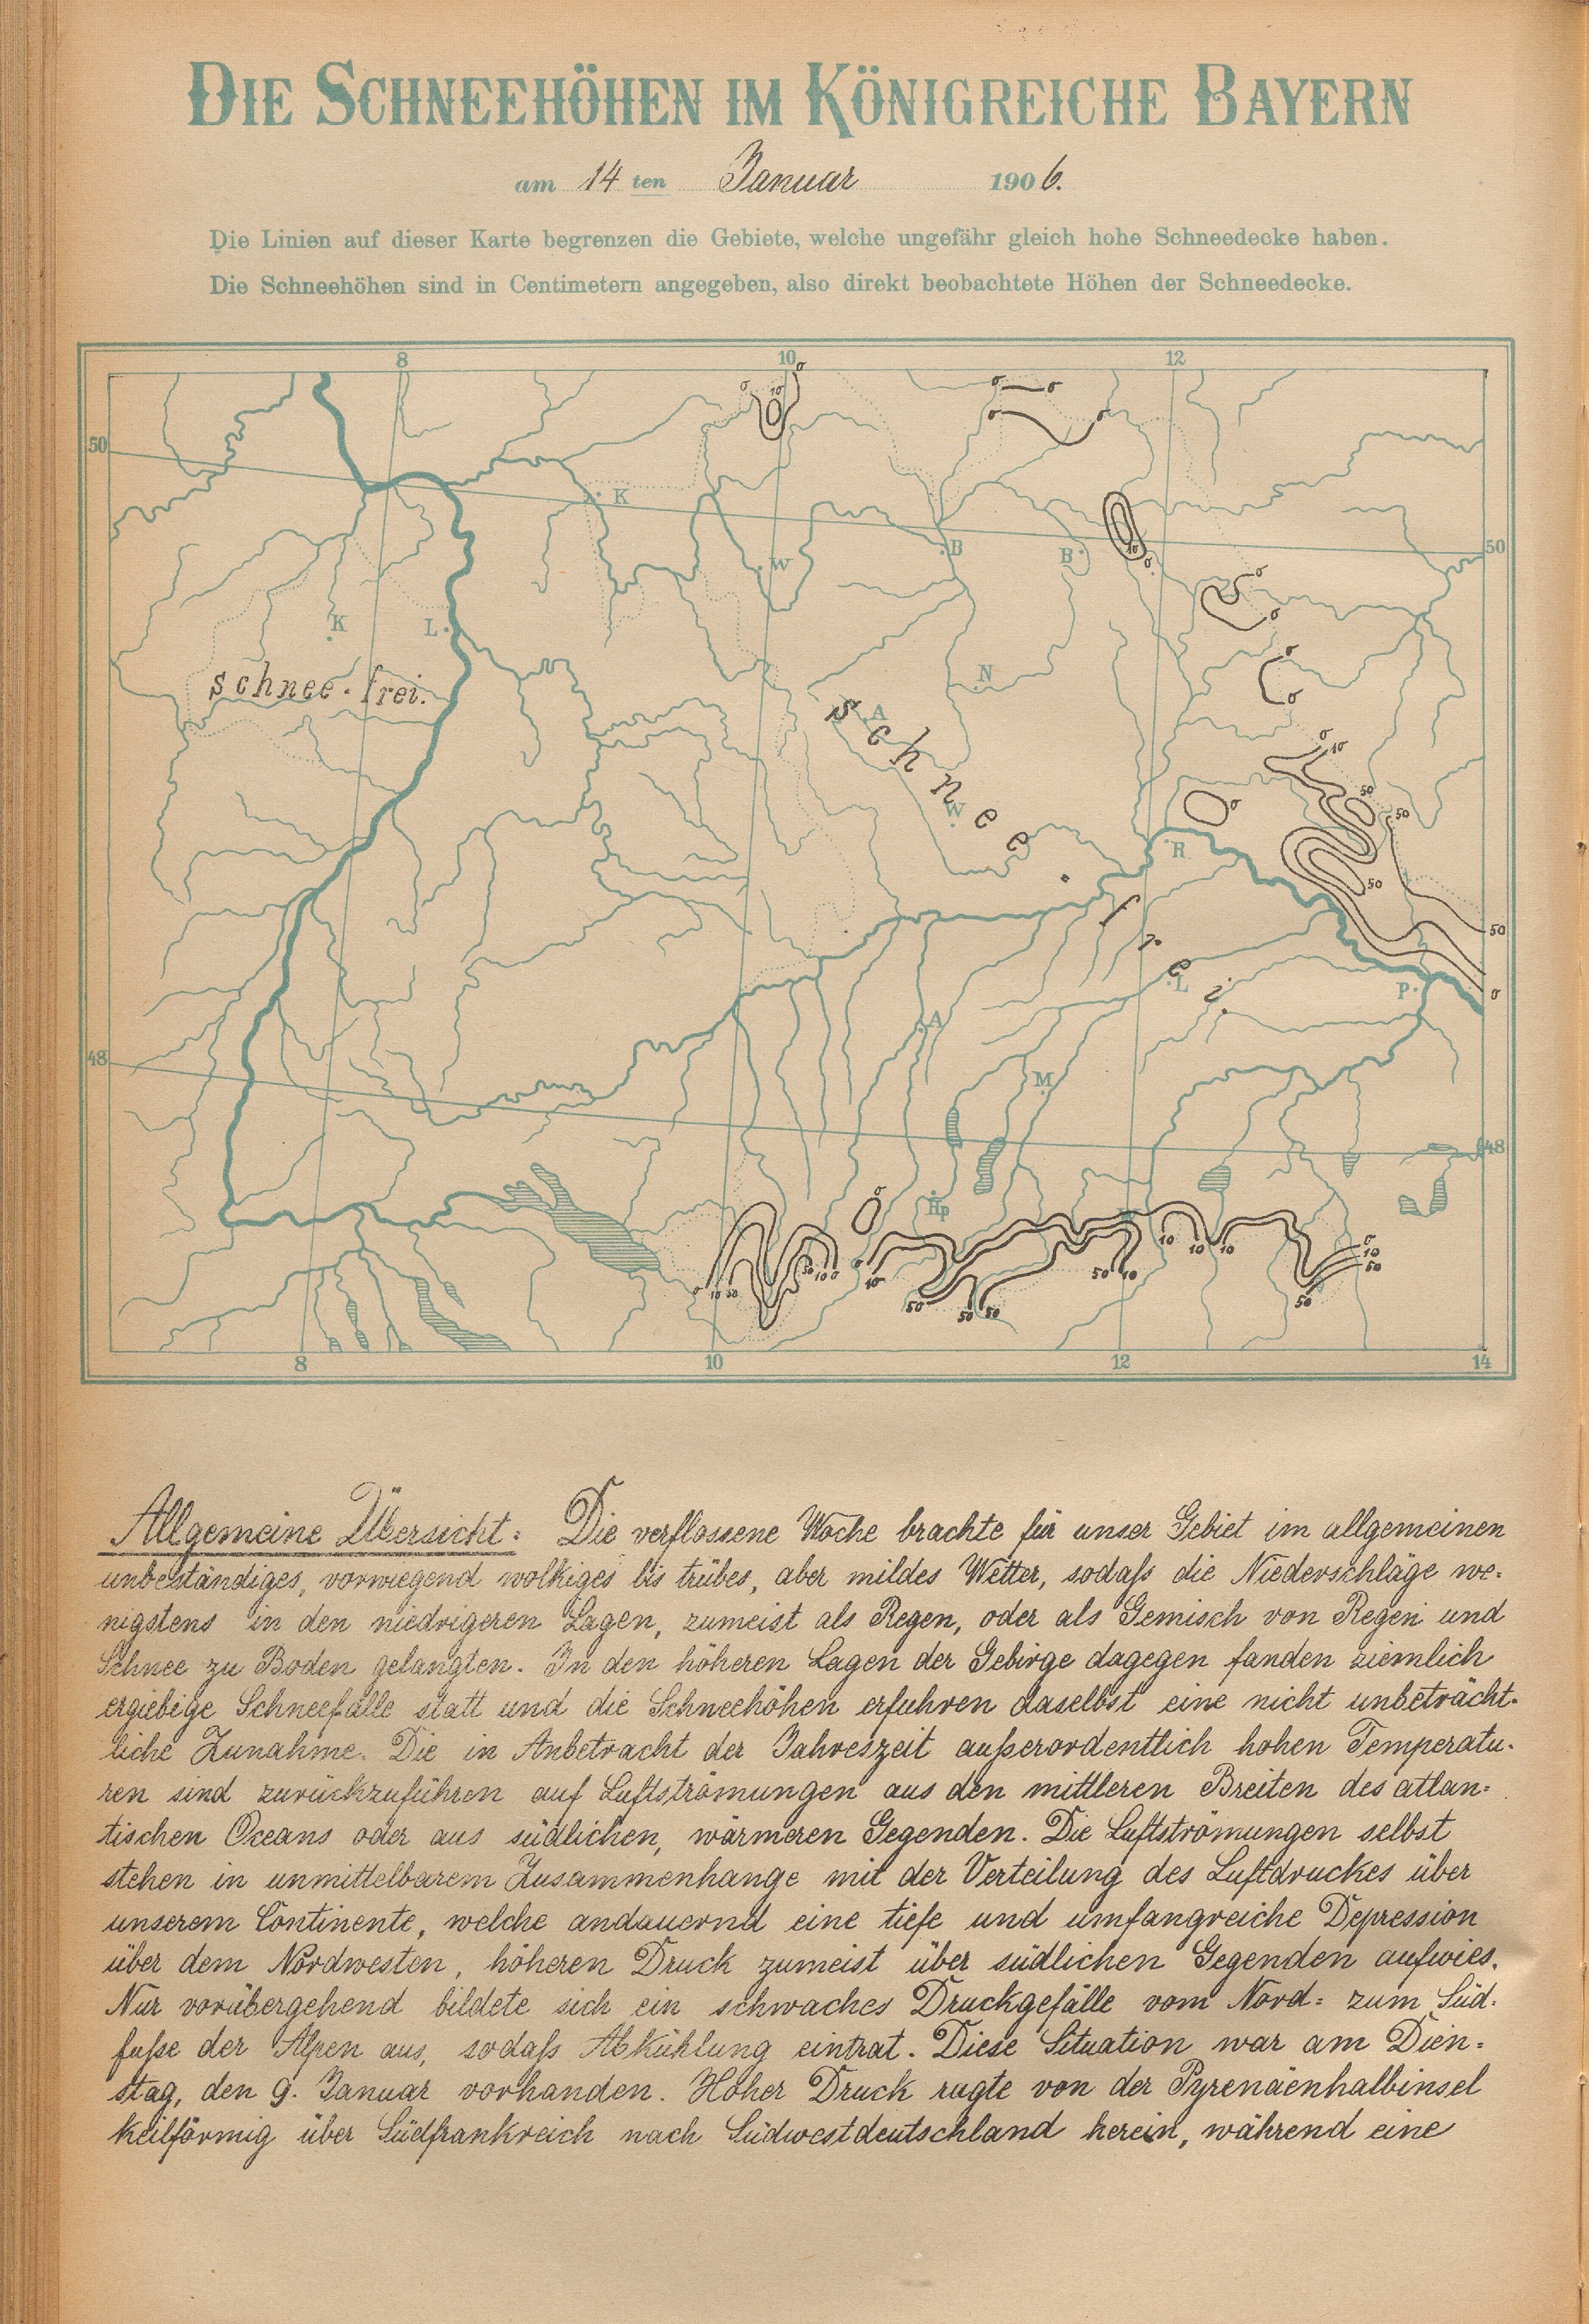 DIE SCHNEEHÖHEN IM KÖNIGREICHE BAYERN
am 14 ten Januar 1906.
Die Linien auf dieser Karte begrenzen die Gebiete, welche ungefähr gleich hohe Schneedecke haben.
Die Schneehöhen sind in Centimetern angegeben, also direkt beobachtete Höhen der Schneedecke.
8 10 12
0 10 0 0 0
0 0
50
K
B B 10 0
50
W
0
0
K L
N
0
0
schnee-frei.
A
schnee-frei.
0 10
50 50
W
0
R
50
50
L P 0
A
48
M
48
0
Hp
10 10 10
0 10 50 50 10 0 0 10 50 10
0
10
50
50 50 50 50
8 10 12 14
Allgemeine Übersicht: Die verflossene Woche brachte für unser Gebiet im allgemeinen
unbeständiges, vorwiegend wolkiges bis trübes, aber mildes Wetter, sodaß die Niederschläge we=
nigstens in den niedrigeren Lagen, zumeist als Regen, oder als Gemisch von Regen und
Schnee zu Boden gelangten. In den höheren Lagen der Gebirge dagegen fanden ziemlich
ergiebige Schneefälle statt und die Schneehöhen erfuhren daselbst eine nicht unbeträcht=
liche Zunahme. Die in Anbetracht der Jahreszeit außerordentlich hohen Temperatu=
ren sind zurückzuführen auf Luftströmungen aus den mittleren Breiten des atlan=
tischen Oceans oder aus südlichen, wärmeren Gegenden. Die Luftströmungen selbst
stehen in unmittelbarem Zusammenhange mit der Verteilung des Luftdruckes über
unserem Continente, welche andauernd eine tiefe und umfangreiche Depression
über dem Nordwesten, höheren Druck zumeist über südlichen Gegenden aufwies.
Nur vorübergehend bildete sich ein schwaches Druckgefälle vom Nord= zum Süd=
fuße der Alpen aus, sodaß Abkühlung eintrat. Diese Situation war am Dien=
stag, den 9. Januar vorhanden. Hoher Druck ragte von der Pyrenäenhalbinsel
keilförmig über Südfrankreich nach Südwestdeutschland herein, während eine